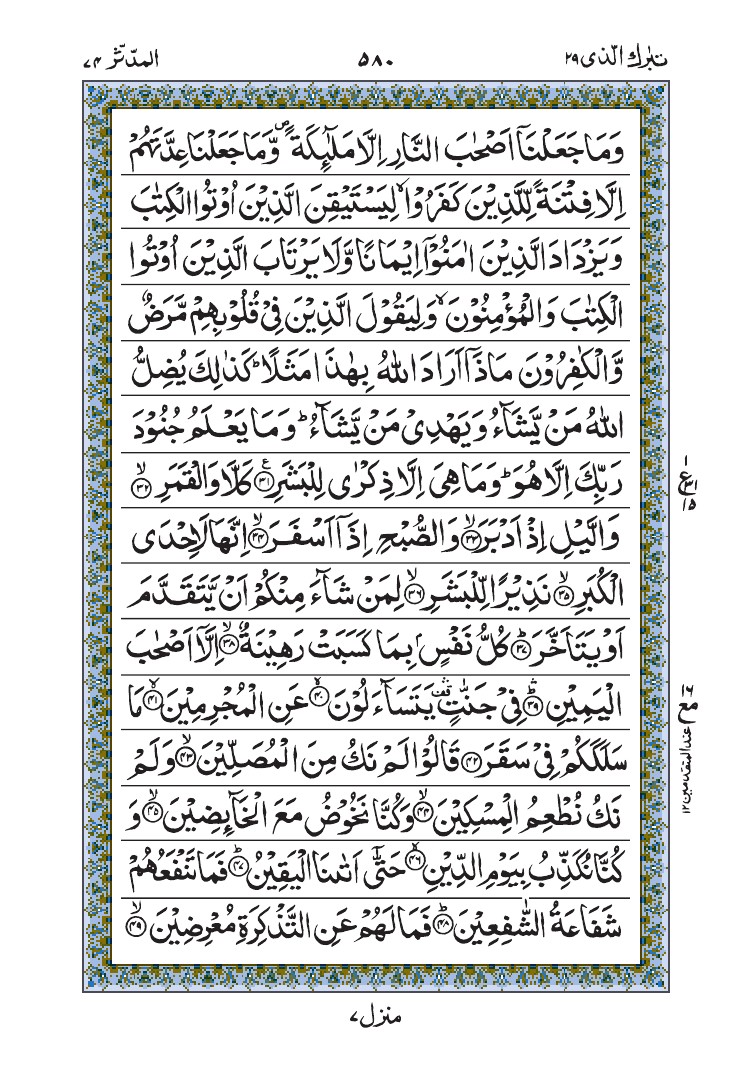 تبٰرك الّذی ۲۹
۵۸۰
المدّثّر ۷۴
وَمَا جَعَلْنَاۤ اَصْحٰبَ النَّارِ اِلَّا مَلٰٓئِكَةً ۪ وَّمَا جَعَلْنَا عِدَّتَهُمْ
اِلَّا فِتْنَةً لِّلَّذِیْنَ كَفَرُوْا ۙ لِیَسْتَیْقِنَ الَّذِیْنَ اُوْتُوا الْكِتٰبَ
وَیَزْدَادَ الَّذِیْنَ اٰمَنُوْۤا اِیْمَانًا وَّلَا یَرْتَابَ الَّذِیْنَ اُوْتُوا
الْكِتٰبَ وَالْمُؤْمِنُوْنَ ۙ وَلِیَقُوْلَ الَّذِیْنَ فِیْ قُلُوْبِهِمْ مَّرَضٌ
وَّالْكٰفِرُوْنَ مَاذَاۤ اَرَادَ اللّٰهُ بِهٰذَا مَثَلًا ؕ كَذٰلِكَ یُضِلُّ
اللّٰهُ مَنْ یَّشَآءُ وَیَهْدِیْ مَنْ یَّشَآءُ ؕ وَمَا یَعْلَمُ جُنُوْدَ
رَبِّكَ اِلَّا هُوَ ؕ وَمَا هِیَ اِلَّا ذِكْرٰی لِلْبَشَرِ ﴿۳۱﴾ كَلَّا وَالْقَمَرِ ۙ﴿۳۲﴾
وَالَّیْلِ اِذْ اَدْبَرَ ۙ﴿۳۳﴾ وَالصُّبْحِ اِذَاۤ اَسْفَرَ ۙ﴿۳۴﴾ اِنَّهَا لَاِحْدَی
الْكُبَرِ ۙ﴿۳۵﴾ نَذِیْرًا لِّلْبَشَرِ ۙ﴿۳۶﴾ لِمَنْ شَآءَ مِنْكُمْ اَنْ یَّتَقَدَّمَ
اَوْ یَتَاَخَّرَ ؕ﴿۳۷﴾ كُلُّ نَفْسٍۭ بِمَا كَسَبَتْ رَهِیْنَةٌ ۙ﴿۳۸﴾ اِلَّاۤ اَصْحٰبَ
الْیَمِیْنِ ؕۛ﴿۳۹﴾ فِیْ جَنّٰتٍ ۛ۫ یَتَسَآءَلُوْنَ ۙ﴿۴۰﴾ عَنِ الْمُجْرِمِیْنَ ۙ﴿۴۱﴾ مَا
سَلَكَكُمْ فِیْ سَقَرَ ﴿۴۲﴾ قَالُوْا لَمْ نَكُ مِنَ الْمُصَلِّیْنَ ۙ﴿۴۳﴾ وَلَمْ
نَكُ نُطْعِمُ الْمِسْكِیْنَ ۙ﴿۴۴﴾ وَكُنَّا نَخُوْضُ مَعَ الْخَآئِضِیْنَ ۙ﴿۴۵﴾ وَ
كُنَّا نُكَذِّبُ بِیَوْمِ الدِّیْنِ ۙ﴿۴۶﴾ حَتّٰۤی اَتٰىنَا الْیَقِیْنُ ؕ﴿۴۷﴾ فَمَا تَنْفَعُهُمْ
شَفَاعَةُ الشّٰفِعِیْنَ ؕ﴿۴۸﴾ فَمَا لَهُمْ عَنِ التَّذْكِرَةِ مُعْرِضِیْنَ ۙ﴿۴۹﴾
۱
ع
۱۵
۱۶
مع
عند المتقدمین ۱۲
منزل ۷